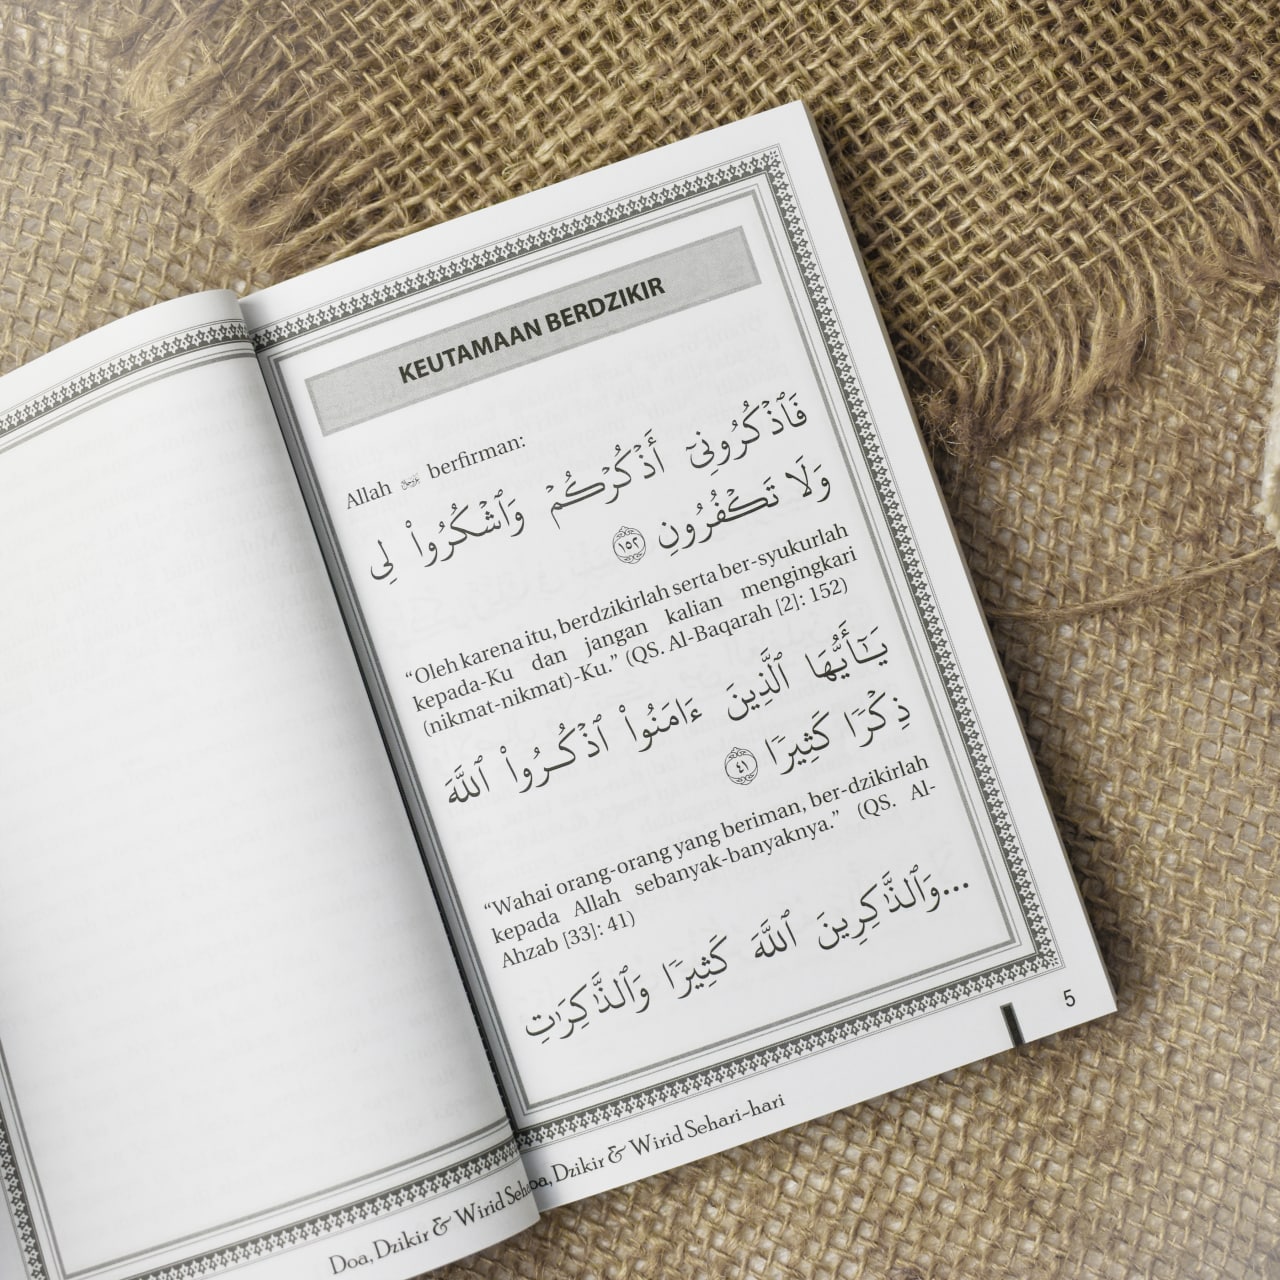 KEUTAMAAN BERDZIKIR
Allah ﷻ berfirman:
فَٱذۡكُرُونِيٓ أَذۡكُرۡكُمۡ وَٱشۡكُرُواْ لِي
وَلَا تَكۡفُرُونِ ١٥٢
“Oleh karena itu, berdzikirlah serta ber-syukurlah
kepada-Ku dan jangan kalian mengingkari
(nikmat-nikmat)-Ku.” (QS. Al-Baqarah [2]: 152)
يَٰٓأَيُّهَا ٱلَّذِينَ ءَامَنُواْ ٱذۡكُرُواْ ٱللَّهَ
ذِكۡرٗا كَثِيرٗا ٤١
“Wahai orang-orang yang beriman, ber-dzikirlah
kepada Allah sebanyak-banyaknya.” (QS. Al-
Ahzab [33]: 41)
...وَٱلذَّٰكِرِينَ ٱللَّهَ كَثِيرٗا وَٱلذَّٰكِرَٰتِ
5
Doa, Dzikir & Wirid Sehari-hari
Doa, Dzikir & Wirid